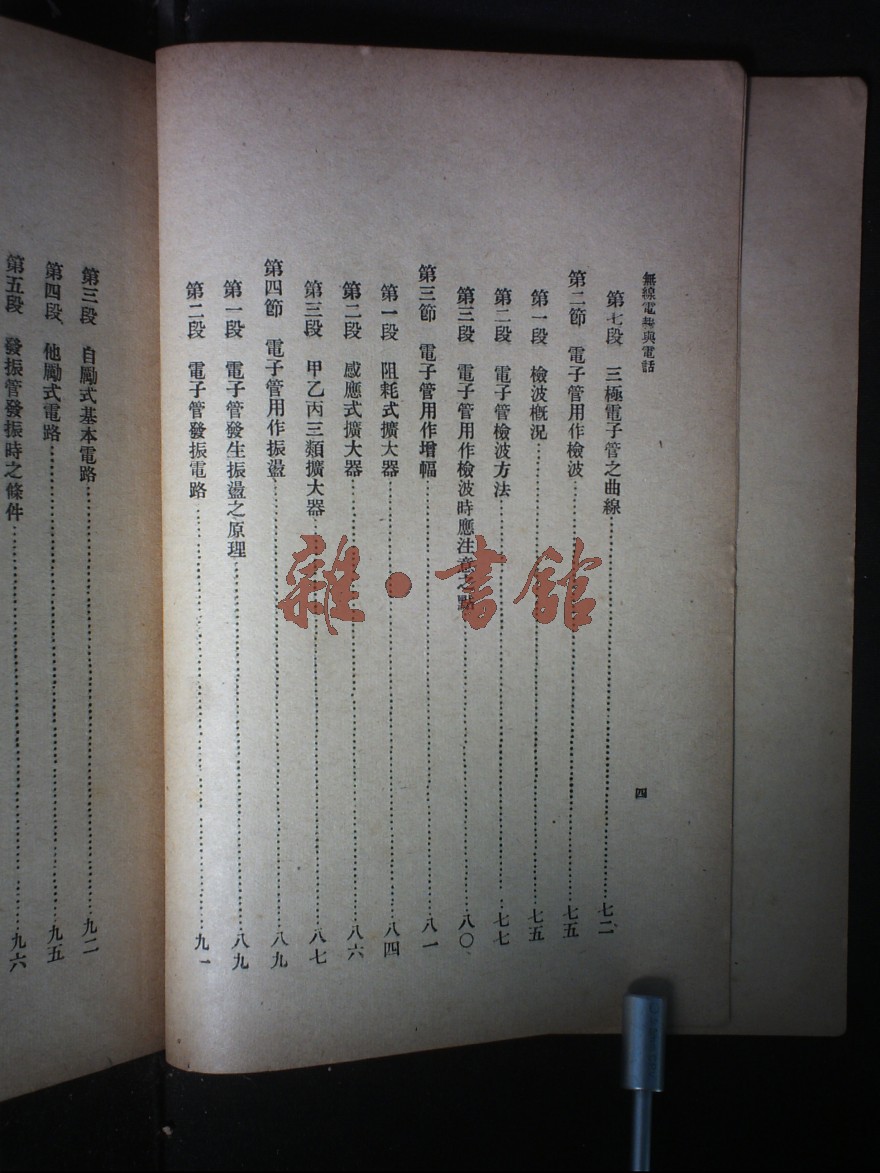 無線電報與電話
四
第七段　三極電子管之曲線……七二
第二節　電子管用作檢波……七五
第一段　檢波概況……七五
第二段　電子管檢波方法……七七
第三段　電子管用作檢波時應注意之點……八〇
第三節　電子管用作增幅……八一
第一段　阻耗式擴大器……八四
第二段　感應式擴大器……八六
第三段　甲乙丙三類擴大器……八七
第四節　電子管用作振盪……八九
第一段　電子管發生振盪之原理……八九
第二段　電子管發振電路……九一
第三段　自勵式基本電路……九二
第四段　他勵式電路……九五
第五段　發振管發振時之條件……九六
雜·書館